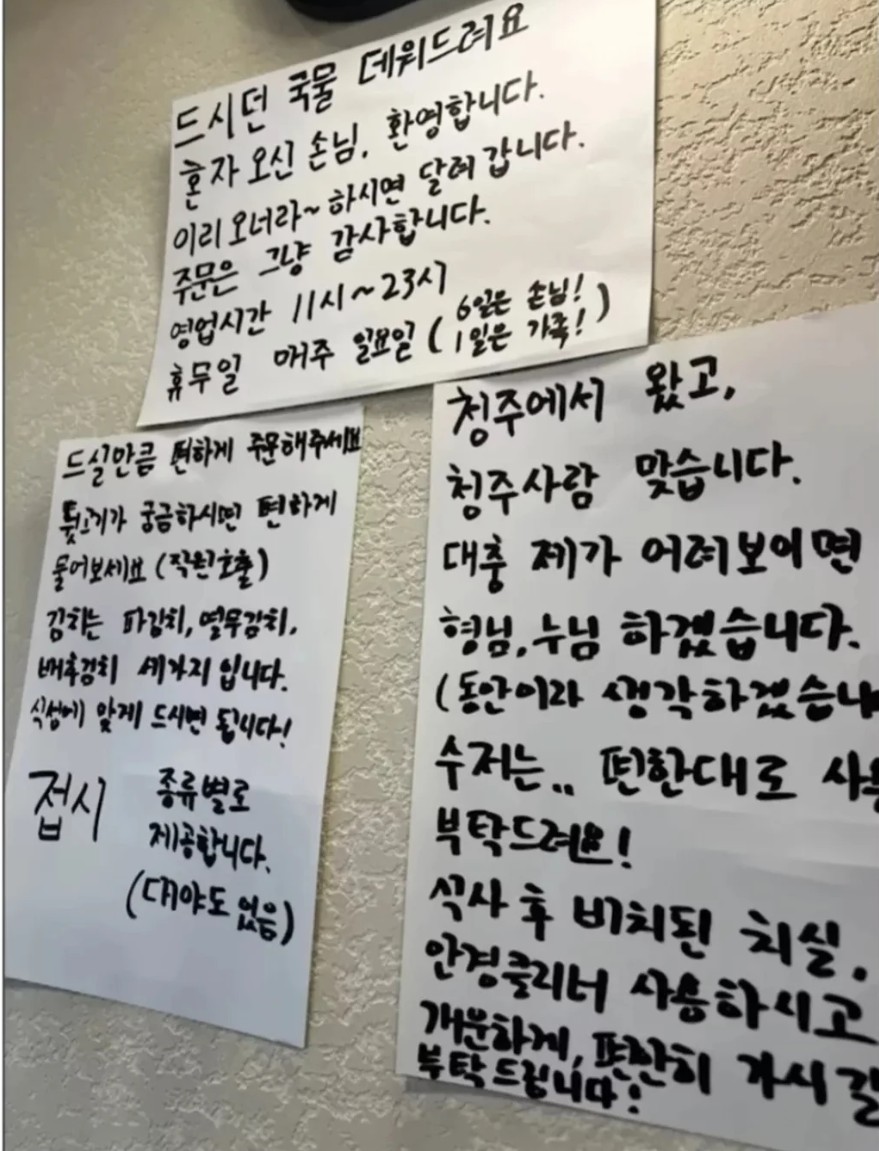 드시던 국물 데워드려요
혼자 오신 손님, 환영합니다.
이리 오너라~ 하시면 달려 갑니다.
주문은 그냥 감사합니다.
영업시간 11시~23시
휴무일 매주 일요일 (6일은 손님! 1일은 가족!)
드실만큼 편하게 주문해주세요
뒷고기가 궁금하시면 편하게
물어보세요 (직원호출)
김치는 파김치, 열무김치,
배추김치 세가지 입니다.
식성에 맞게 드시면 됩니다!
접시 종류별로
제공합니다.
(대야도 있음)
청주에서 왔고,
청주사람 맞습니다.
대충 제가 어려보이면
형님, 누님 하겠습니다.
(동안이라 생각하겠습니
수저는.. 편한대로
부탁드려요!
식사 후 비치된 치실,
안경클리너 사용하시고
개운하게, 편안히 가시길
부탁드립니다!